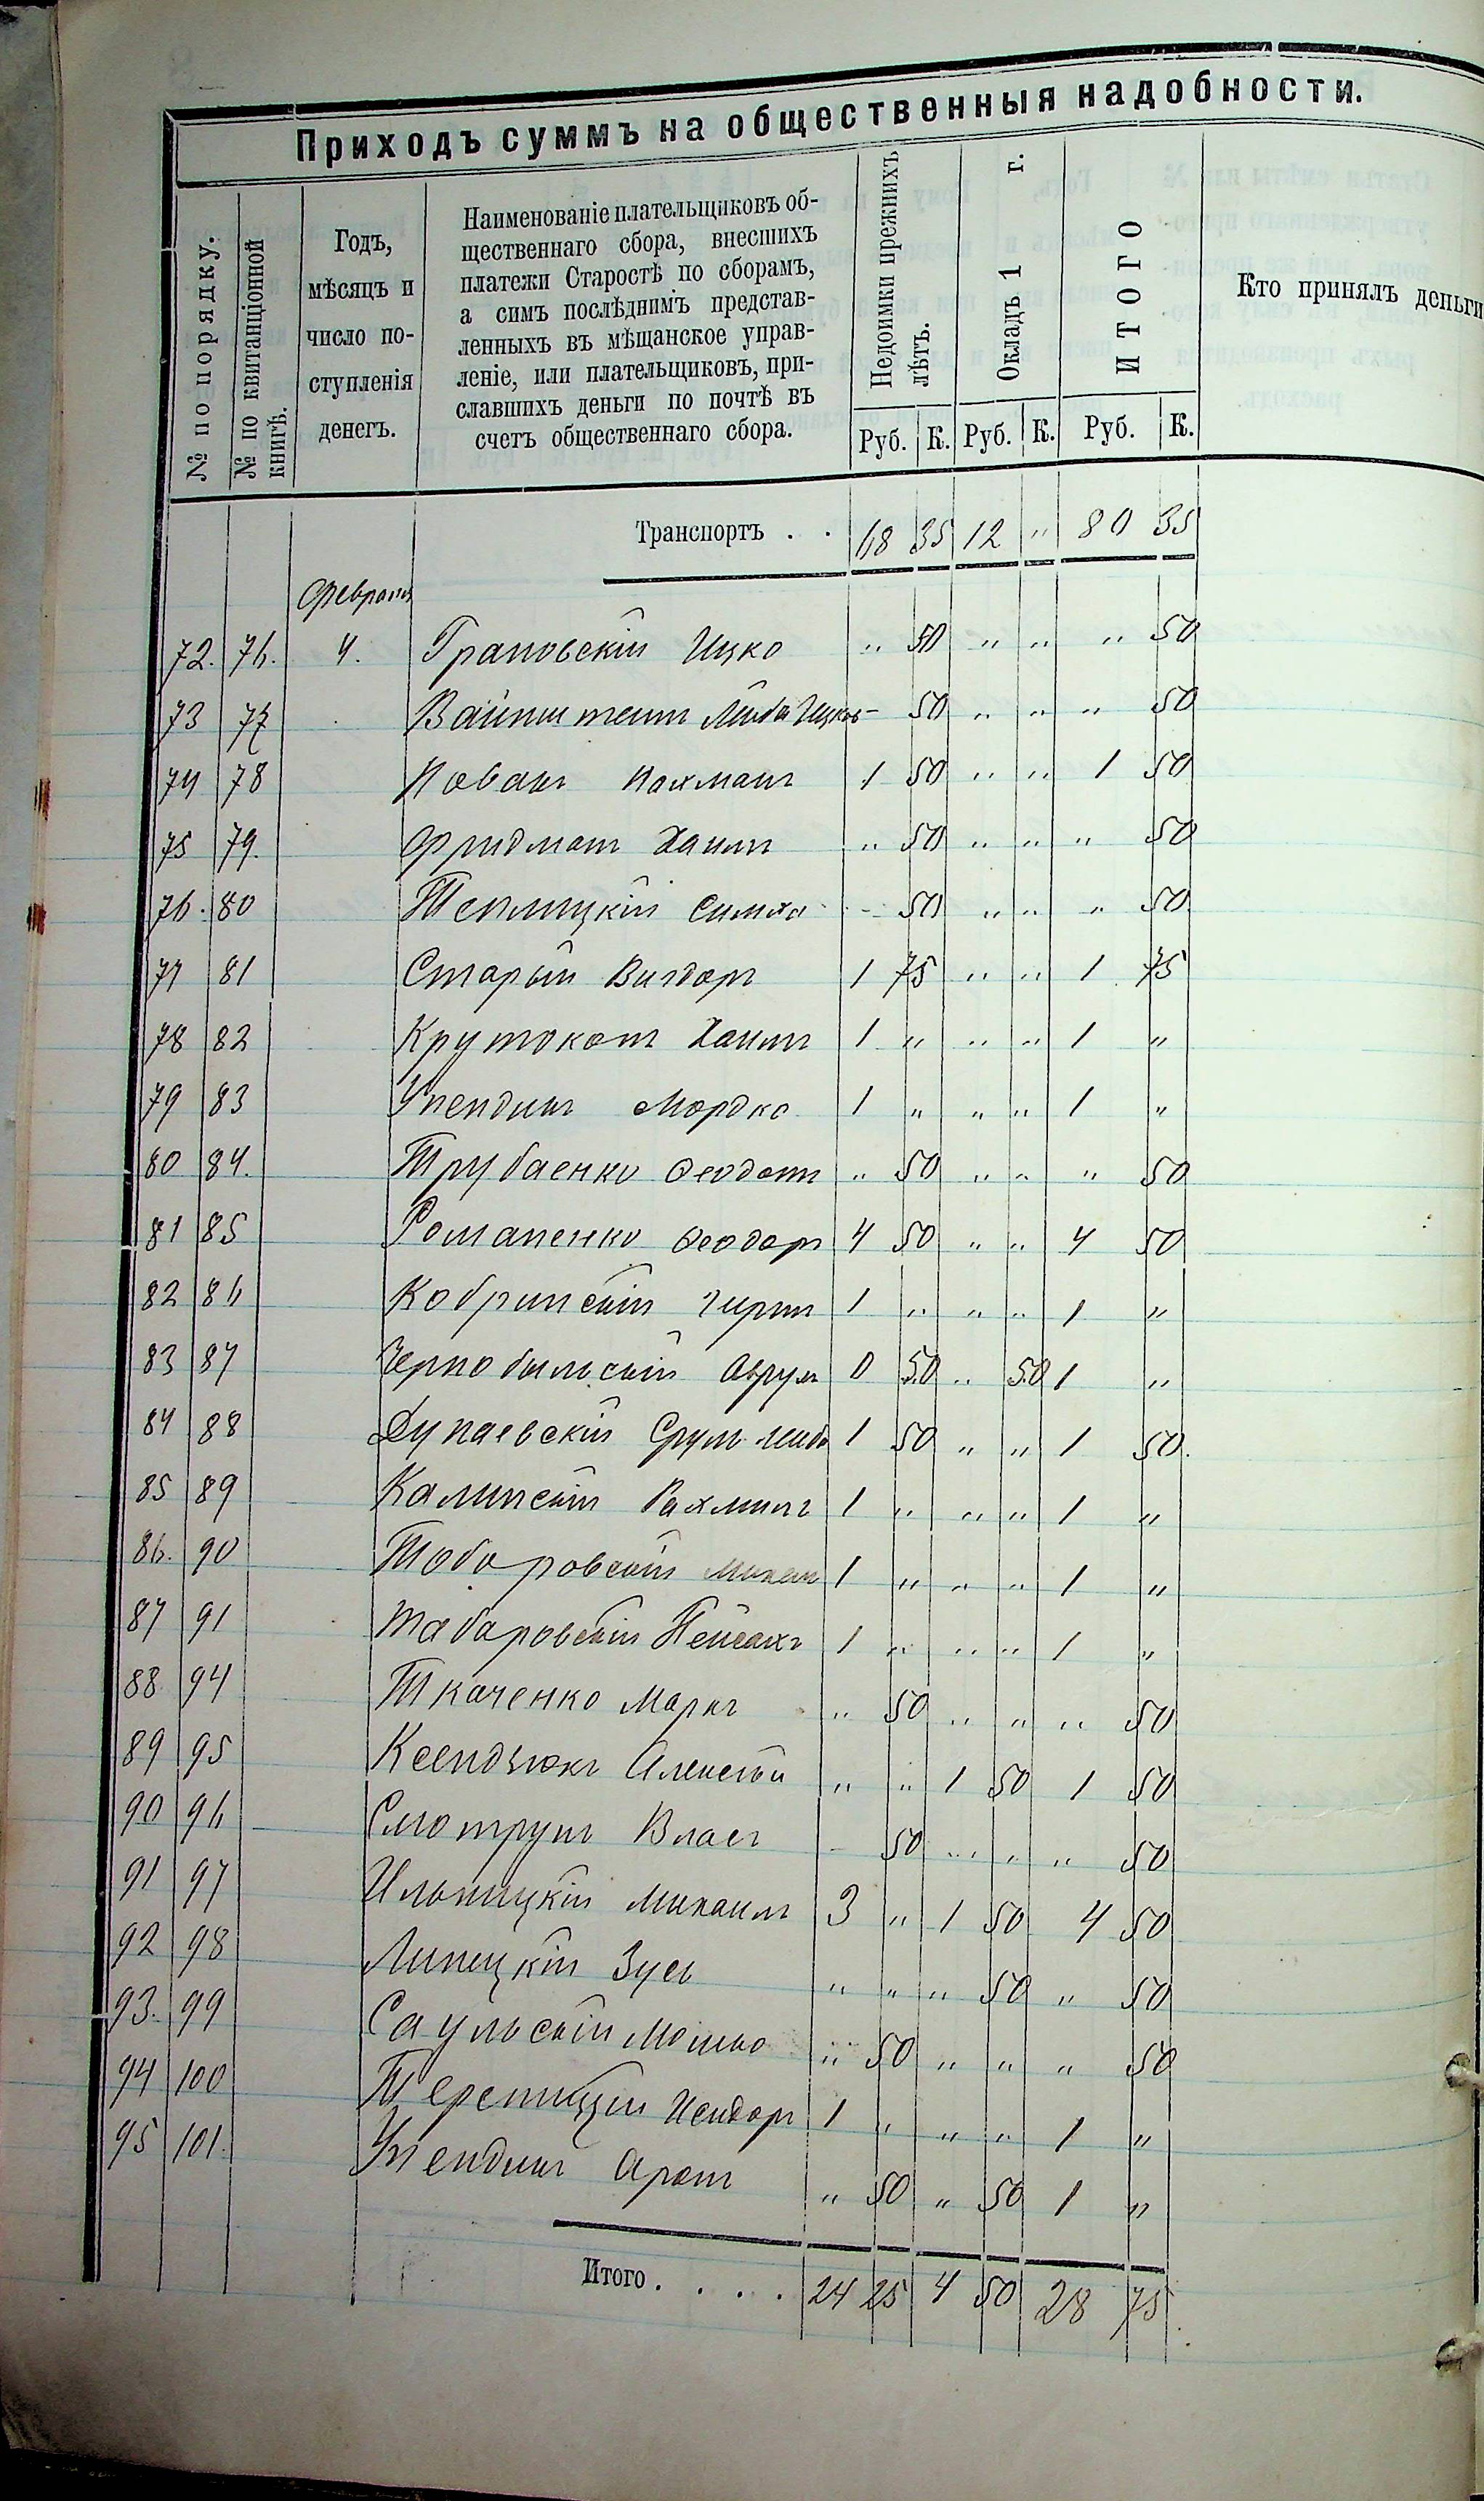 Приходъ суммъ на общественныя надобности.
№ по порядку.
№ по квитанціонной книгѣ.
Годъ,
мѣсяцъ и
число по-
ступленія
денегъ.
Наименованіе плательщиковъ об-
щественнаго сбора, внесшихъ
платежи Старостѣ по сборамъ,
а симъ послѣднимъ представ-
ленныхъ въ мѣщанское управ-
леніе, или плательщиковъ, при-
славшихъ деньги по почтѣ въ
счетъ общественнаго сбора.
Недоимки прежнихъ лѣтъ.
Окладъ 1 г.
ИТОГО
Кто принялъ деньги
Руб. К. Руб. К. Руб. К.
Транспортъ . . 68 35 12 " 80 35
Февраля
72. 76. 4. Грановскій Ицко " 50 " " " 50
73 77 Вайнштейнъ Лейба Ицков - 50 " " " 50
74 78 Новакъ Нахманъ 1 50 " " 1 50
75 79. Фридманъ Хаимъ " 50 " " " 50
76. 80 Теплицкій Симха - 50 " " " 50
77 81 Старый Вигдоръ 1 75 " " 1 75
78 82 Крутоконъ Хаимъ 1 " " " 1 "
79 83 Упендикъ Мордко 1 " " " 1 "
80 84. Трубаенко Феодотъ " 50 " " " 50
81 85 Романенко Феодоръ 4 50 " " 4 50
82 86 Кобринскій Гиршъ 1 " " " 1 "
83 87 Чернобыльскій Аврумъ 0 50 " 50 1 "
84 88 Дунаевскій Срулъ Лейба 1 50 " " 1 50.
85 89 Калинскій Рахмилъ 1 " " " 1 "
86. 90 Тобаровскій 1 " " " 1 "
87 91 Табаровскій Пейсахъ 1 " " " 1 "
88 94 Ткаченко Маркъ " 50 " " " 50
89 95 Ксендзюкъ Алексѣй " " 1 50 1 50
90 96 Смотрунъ Власъ - 50 " " " 50
91 97 Ильницкій Михаилъ 3 " 1 50 4 50
92 98 Липецкій Зусь " " " 50 " 50
93. 99 Саульскій Мошко " 50 " " " 50
94 100 Исидоръ 1 " " " 1 "
95 101. Упендикъ Аронъ " 50 " 50 1 "
Итого . . . . 24 25 4 50 28 75